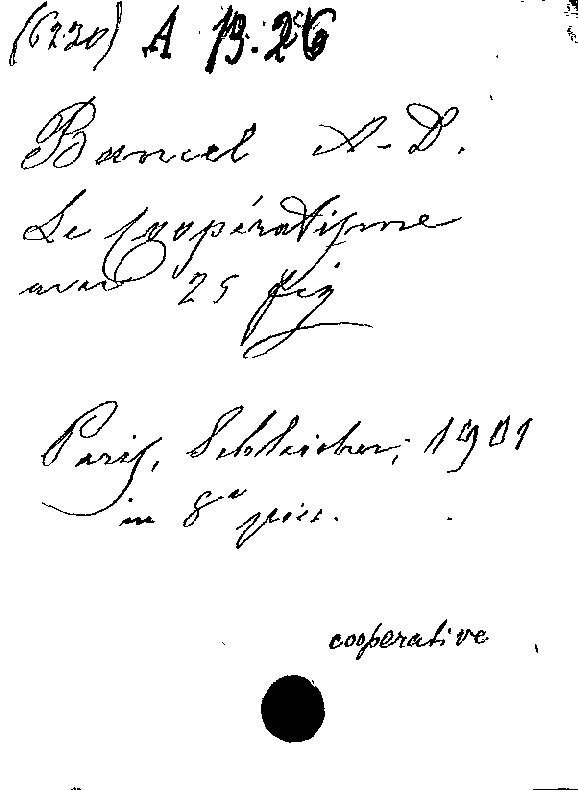 (6220) A 19.26
Bancel A-D.
Le Coopératisme
avec 25 fig
Paris, Schleicher, 1901
in 8°
cooperative